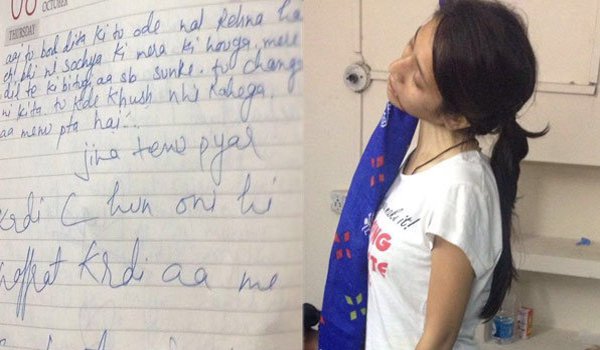 08
OCTOBER
THURSDAY
aaj tu bol dita ki tu ode nal Rehna hai
eh bhi ni sochya ki mera ki houga, mere
dil te ki bitugi aa sb sunke. tu change
ni kita. tu kde khush nhi Rahega.
aa menu pta hai!..
jina tenu pyar
krdi c hun oni hi
naffrat krdi aa me
make it!